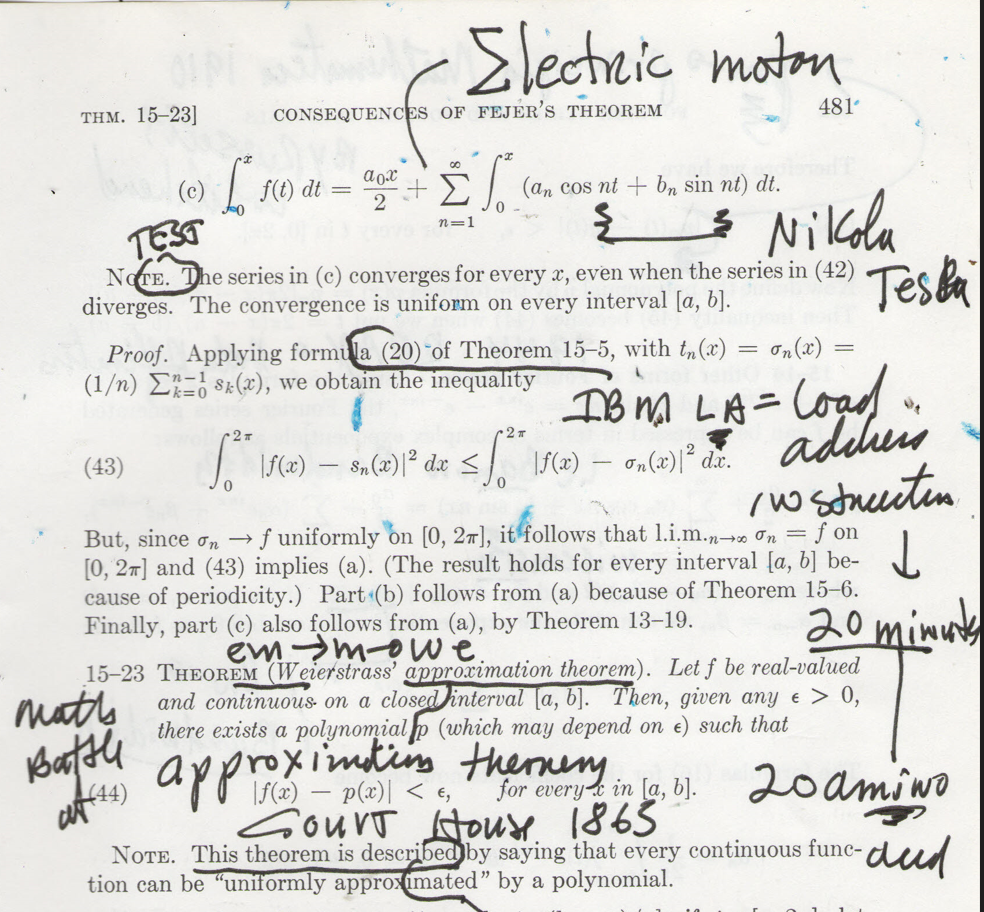 Electric motor
THM. 15–23] CONSEQUENCES OF FEJER'S THEOREM 481
(c) ∫₀ˣ f(t) dt = a₀x/2 + ∑_{n=1}^{∞} ∫₀ˣ (aₙ cos nt + bₙ sin nt) dt.
TEST
Nikola
Tesla
NOTE. The series in (c) converges for every x, even when the series in (42)
diverges. The convergence is uniform on every interval [a, b].
Proof. Applying formula (20) of Theorem 15–5, with tₙ(x) = σₙ(x) =
(1/n) ∑_{k=0}^{n−1} sₖ(x), we obtain the inequality
IBM LA = Load
address
(43) ∫₀^{2π} |f(x) − sₙ(x)|² dx ≤ ∫₀^{2π} |f(x) − σₙ(x)|² dx.
But, since σₙ → f uniformly on [0, 2π], it follows that l.i.m.ₙ→∞ σₙ = f on
[0, 2π] and (43) implies (a). (The result holds for every interval [a, b] be-
cause of periodicity.) Part (b) follows from (a) because of Theorem 15–6.
Finally, part (c) also follows from (a), by Theorem 13–19.
↓
20 minutes
em → m-owe
15–23 THEOREM (Weierstrass' approximation theorem). Let f be real-valued
and continuous on a closed interval [a, b]. Then, given any ε > 0,
there exists a polynomial p (which may depend on ε) such that
Math
Battle
at
approximation
(44) |f(x) − p(x)| < ε, for every x in [a, b].
20 amino
acid
Court House 1865
NOTE. This theorem is described by saying that every continuous func-
tion can be "uniformly approximated" by a polynomial.